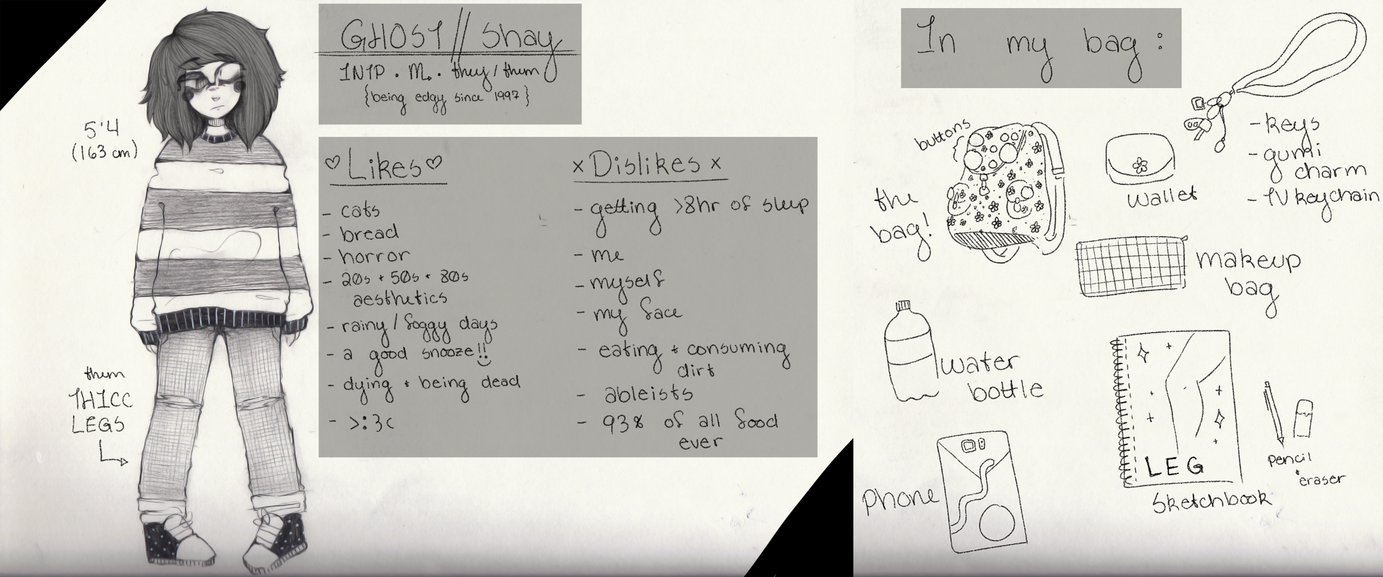 GHOST // Shay
INTP . M. . they / them
{being edgy since 1997}
5'4
(163 cm)
them
THICC
LEGS
♡ Likes ♡
- cats
- bread
- horror
- 20s + 50s + 80s
aesthetics
- rainy / foggy days
- a good snooze!!
- dying + being dead
- >:3c
x Dislikes x
- getting >8hr of sleep
- me
- myself
- my face
- eating + consuming
dirt
- ableists
- 93% of all food
ever
In my bag :
buttons
the
bag!
wallet
- keys
- gumi
charm
- TV keychain
makeup
bag
water
bottle
phone
LEG
sketchbook
pencil
+ eraser